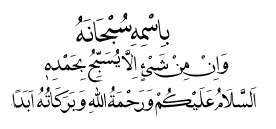 بِاسْمِهِ سُبْحَانَهُ
وَاِنْ مِنْ شَىْءٍ اِلَّا يُسَبِّحُ بِحَمْدِهٖ
اَلسَّلَامُ عَلَيْكُمْ وَرَحْمَةُ اللهِ وَبَرَكَاتُهُ اَبَدًا